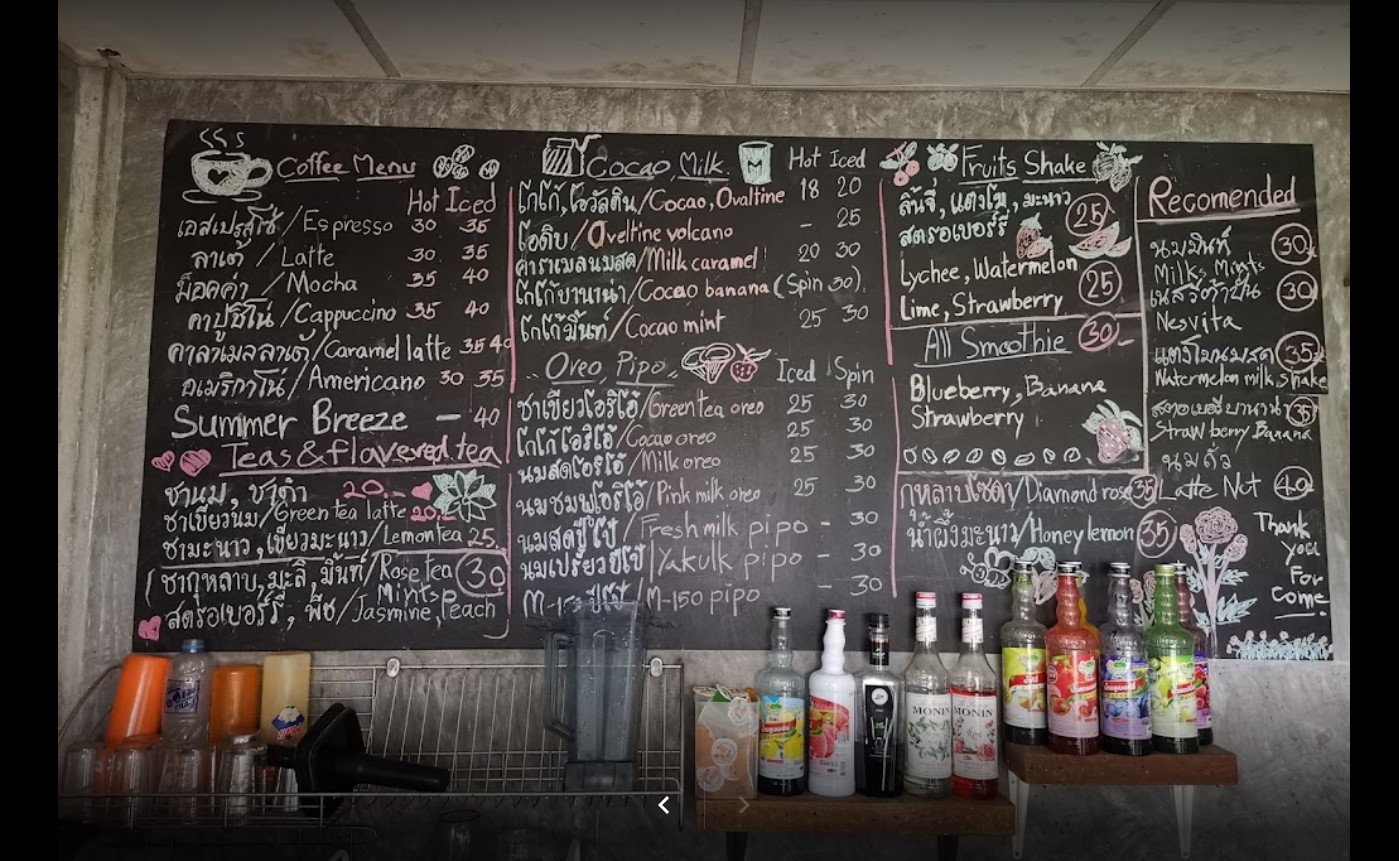 Coffee Menu
Hot Iced
เอสเปรสโซ่/Espresso 30 35
ลาเต้ / Latte 30 35
ม็อคค่า / Mocha 35 40
คาปูชิโน่ /Cappuccino 35 40
คาลาเมลลาเต้/Caramel latte 35 40
อเมริกาโน่/Americano 30 35
Summer Breeze - 40
Teas & flavered tea
ชานม, ชาดำ 20.-
ชาเขียวนม/Green tea latte 20.-
ชามะนาว, เขียวมะนาว/Lemon tea 25.
ชากุหลาบ, มะลิ, มิ้นท์/Rose tea 30
Mints,
สตรอเบอร์รี่, พีช/Jasmine, Peach
Cocao Milk Hot Iced
โกโก้, โอวัลติน/Cocao, Ovaltine 18 20
โอดิบ/Oveltine volcano - 25
คาราเมลนมสด/Milk caramel 20 30
โกโก้บานาน่า/Cocao banana (Spin 30)
โกโก้มิ้นท์/Cocao mint 25 30
Oreo, Pipo Iced Spin
ชาเขียวโอริโอ้/Green tea oreo 25 30
โกโก้โอริโอ้/Cocao oreo 25 30
นมสดโอริโอ้/Milk oreo 25 30
นมชมพูโอริโอ้/Pink milk oreo 25 30
นมสดปีโป้/Fresh milk pipo - 30
นมเปรี้ยวปีโป้/Yakulk pipo - 30
M-150 ปีโป้/M-150 pipo - 30
Fruits Shake
ลิ้นจี่, แตงโม, มะนาว
สตรอเบอร์รี่ 25
Lychee, Watermelon
Lime, Strawberry 25
All Smoothie 30.-
Blueberry, Banana
Strawberry
กุหลาบโซดา/Diamond rose 35
น้ำผึ้งมะนาว/Honey lemon 35
Recomended
นมมินท์ 30
Milks Mints
เนสวีต้าปั่น 30
Nesvita
แตงโมนมสด 35
Watermelon milk shake
สตอเบอรี่บานาน่า 35
Strawberry Banana
นมถั่ว
Latte Nut 40
Thank
you
For
Come
MONIN
MONIN